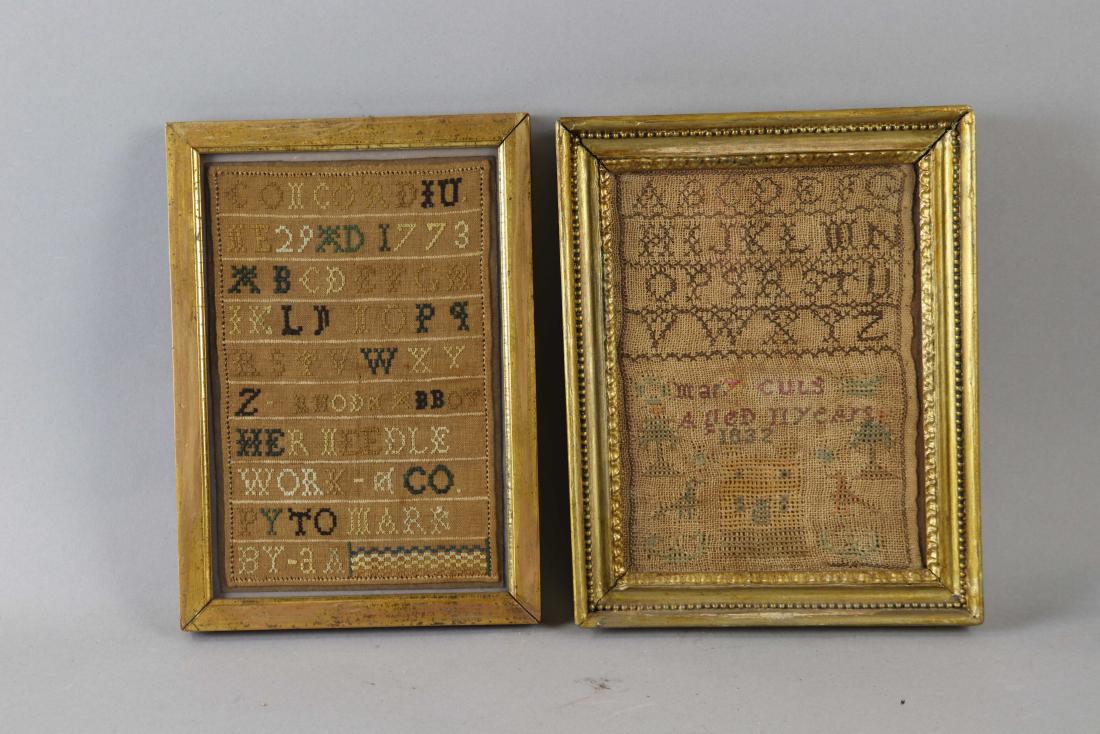 CONCORD IU
NE 29 AD 1773
A B C D E F G H
I K L M N O P q
R S T V W X Y
Z - RHODA ABBOT
HER NEEDLE
WORK - a CO
PY TO MARK
BY - a A
A B C D E F G
H I J K L M N
O P Q R S T U
V W X Y Z
mary CULS
Aged 11 years
1832